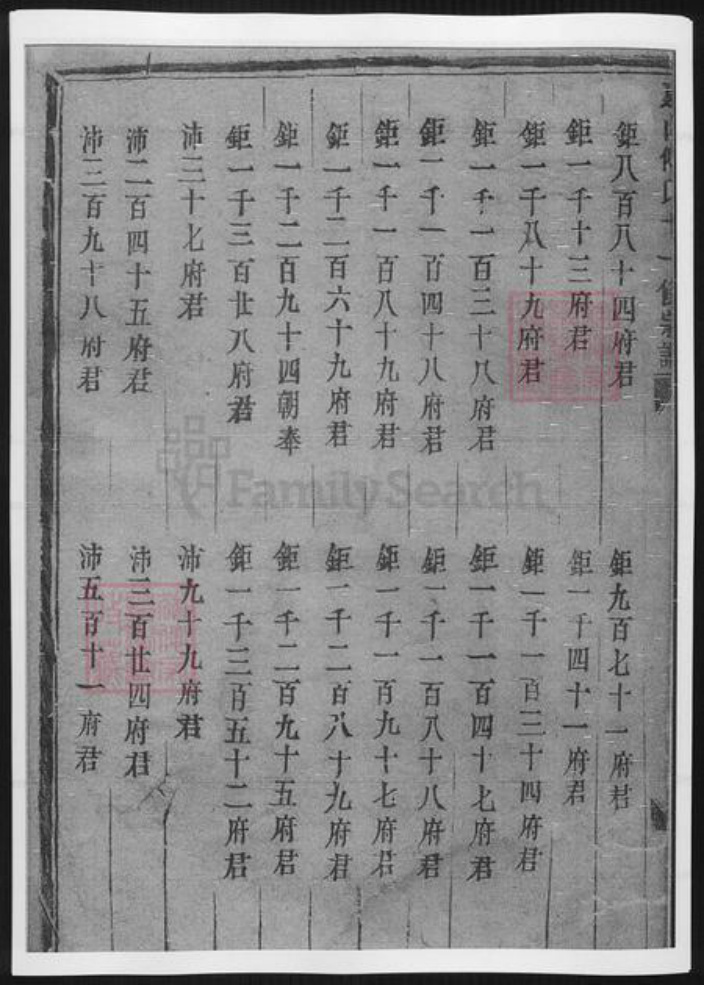 鉅八百八十四府君 鉅九百七十一府君
鉅一千十三府君 鉅一千四十一府君
鉅一千八十九府君 鉅一千一百三十四府君
鉅一千一百三十八府君 鉅一千一百四十七府君
鉅一千一百四十八府君 鉅一千一百八十八府君
鉅一千一百八十九府君 鉅一千一百九十七府君
鉅一千二百六十九府君 鉅一千二百八十九府君
鉅一千二百九十四朝奉 鉅一千二百九十五府君
鉅一千三百廿八府君 鉅一千三百五十二府君
沛三十七府君 沛九十九府君
沛二百四十五府君 沛三百廿四府君
沛三百九十八府君 沛五百十一府君
FamilySearch